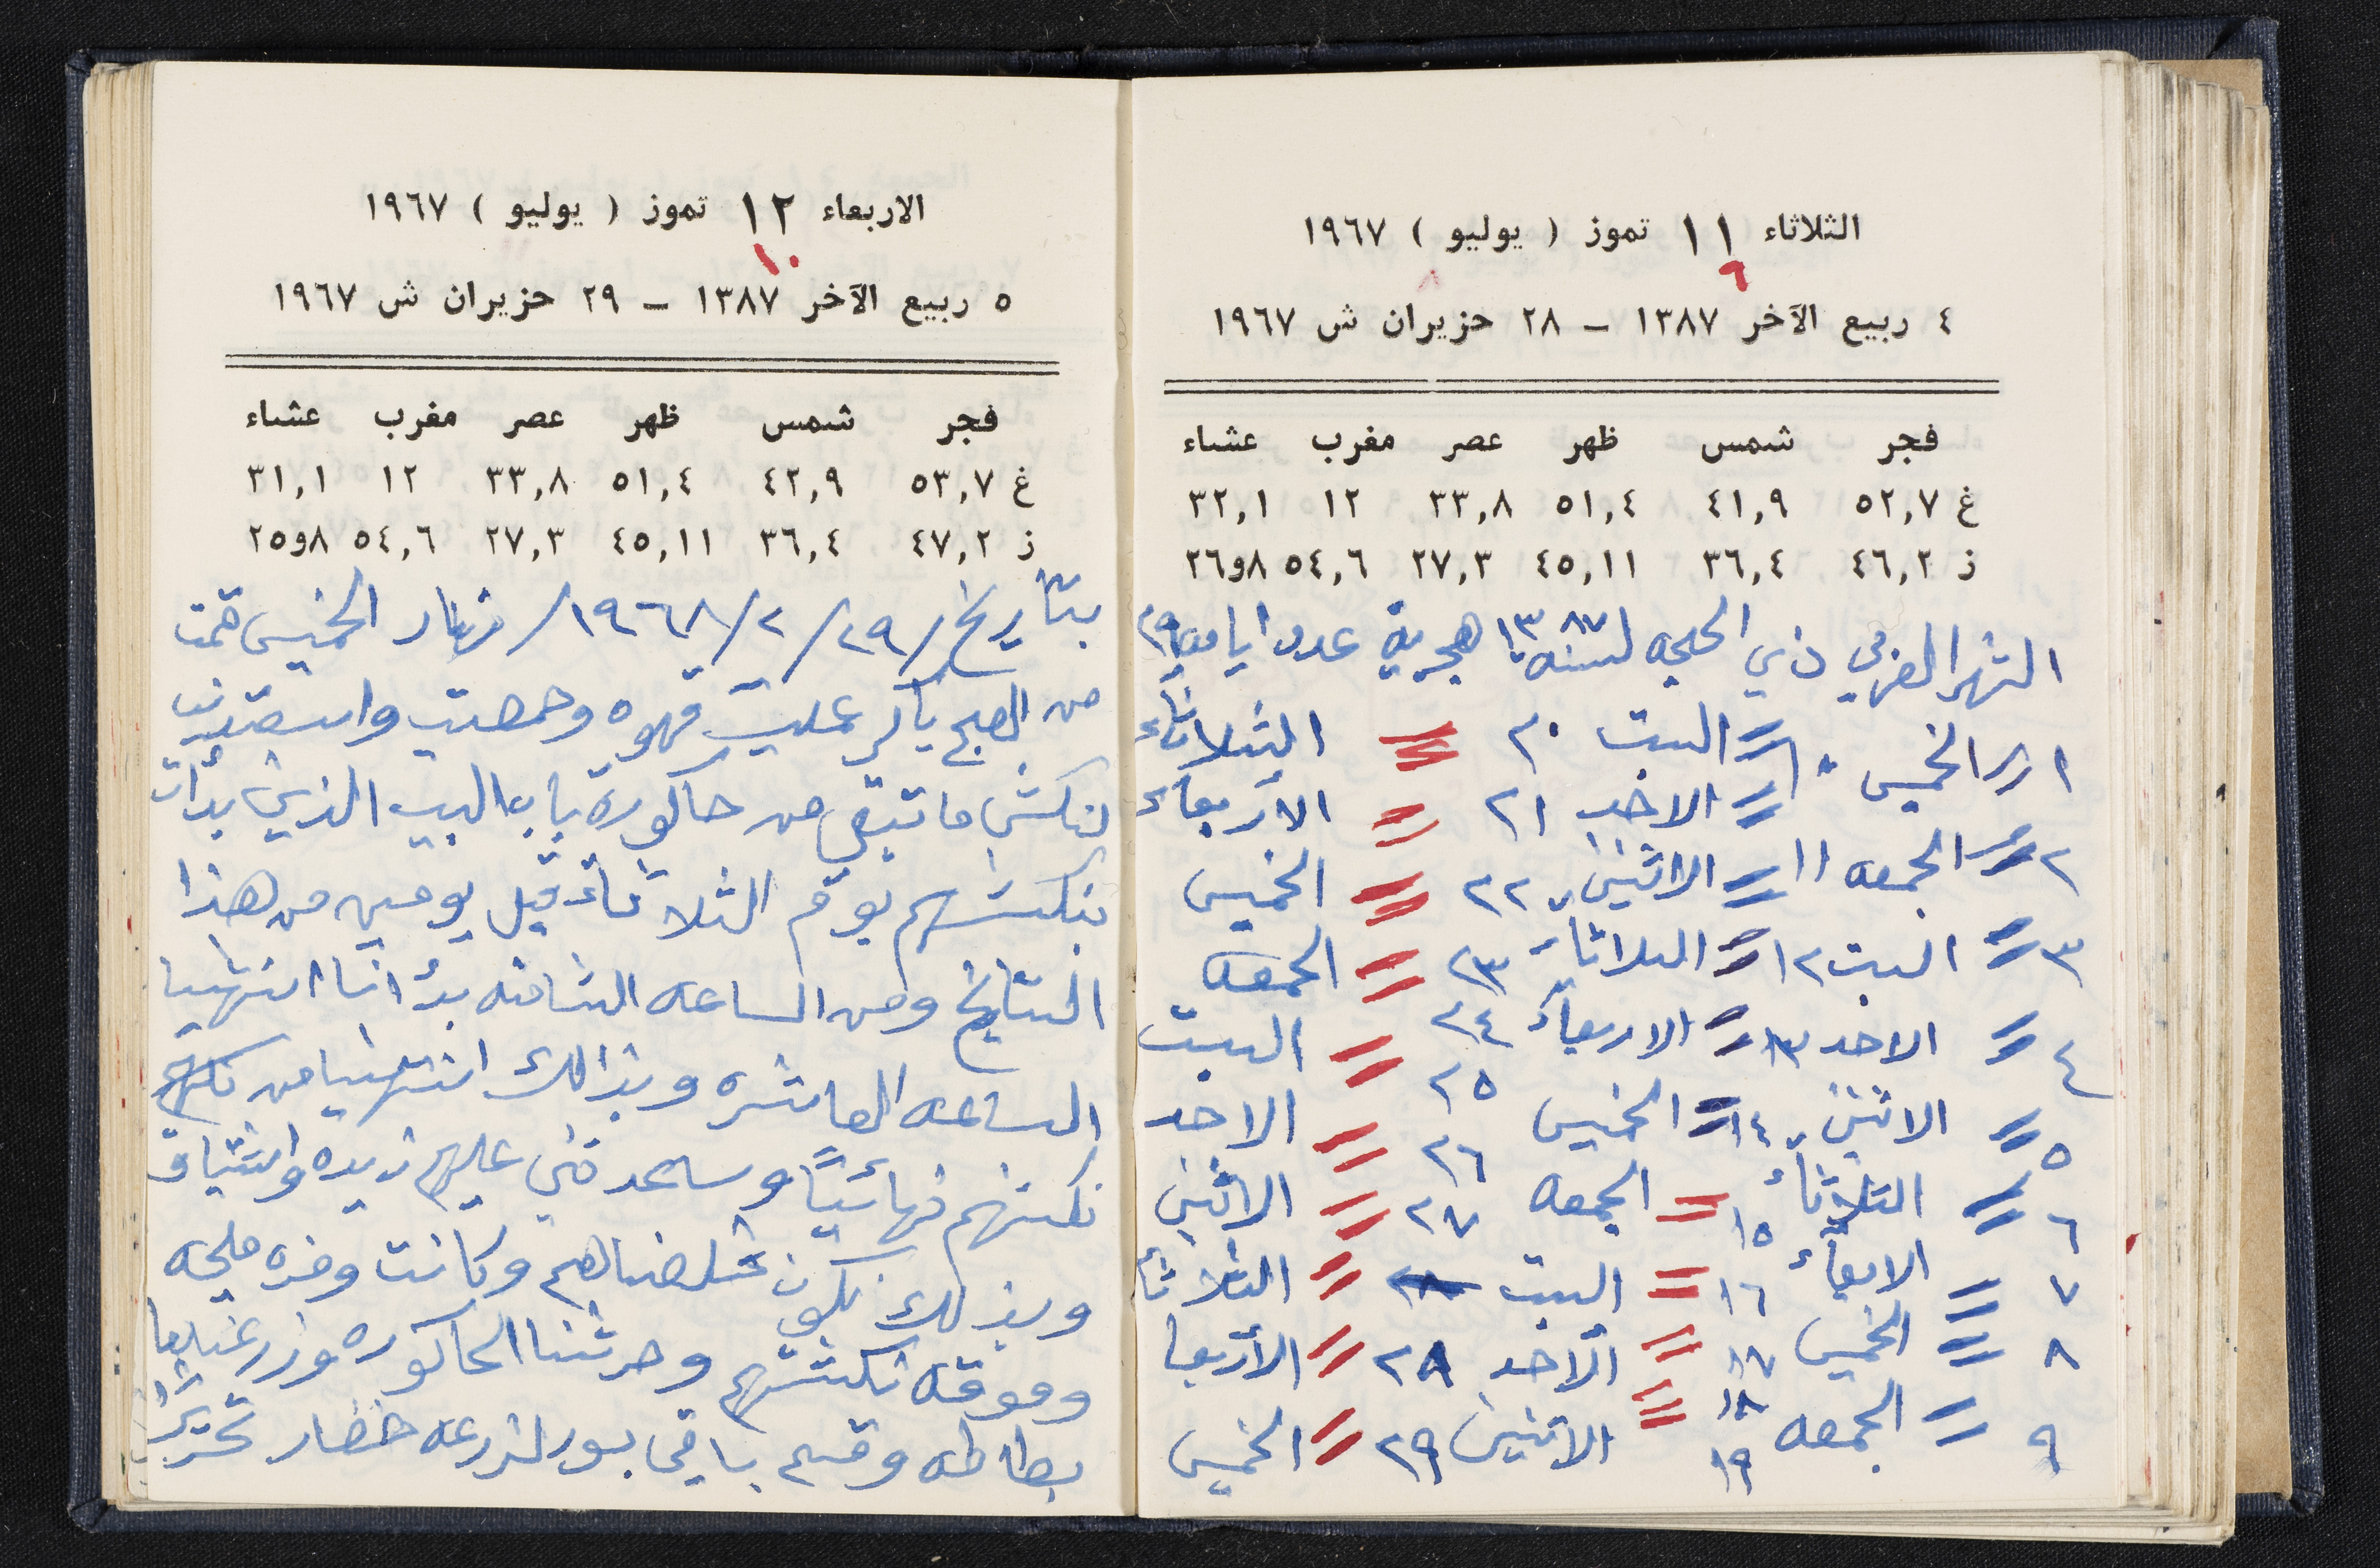 الثلاثاء ١١ تموز ( يوليو ) ١٩٦٧
٦
٤ ربيع الآخر ١٣٨٧ – ٢٨ حزيران ش ١٩٦٧
فجر شمس ظهر عصر مغرب عشاء
غ ٥٢,٧ ٤١,٩ ٥١,٤ ٣٣,٨ ١٢ ٣٢,١
ز ٤٦,٢ ٣٦,٤ ٤٥,١١ ٢٧,٣ ٥٤,٦ ٨و٢٦
الشهر العربي ذي الحجه لسنة ١٣٨٧ هجرية عدد ايامه ٢٩
١ // الخميس ١٠ // السبت ٢٠ // الثلاثاء
٢ // الجمعه ١١ // الاحد ٢١ // الاربعاء
٣ // السبت ١٢ // الاثنين ٢٢ // الخميس
٤ // الاحد ١٣ // الثلاثاء ٢٣ // الجمعه
٥ // الاثنين ١٤ // الاربعاء ٢٤ // السبت
٦ // الثلاثاء ١٥ // الخميس ٢٥ // الاحد
٧ // الاربعاء ١٦ // الجمعه ٢٦ // الاثنين
٨ // الخميس ١٧ // السبت ٢٧ // الثلاثاء
٩ // الجمعه ١٨ // الاحد ٢٨ // الاربعا
١٩ // الاثنين ٢٩ // الخميس
الاربعاء ١٢ تموز ( يوليو ) ١٩٦٧
١٠
٥ ربيع الآخر ١٣٨٧ – ٢٩ حزيران ش ١٩٦٧
فجر شمس ظهر عصر مغرب عشاء
غ ٥٣,٧ ٤٢,٩ ٥١,٤ ٣٣,٨ ١٢ ٣١,١
ز ٤٧,٢ ٣٦,٤ ٤٥,١١ ٢٧,٣ ٥٤,٦ ٨و٢٥
بتأريخ /٢٩/٢/١٩٦٨/ نهار الخميس قمت
من الصبح باكر عمليت قهوه وحمصت واستعديت
لنكش ما تبقى من حاكورة باب البيت الذي بدأت
بنكشهم يوم الثلاثاء قبل يومين من هذا
التاريخ ومن الساعه الثامنه بدأنا انتهينا
الساعه العاشره وبذالك انتهينا من نكشهم
نكشهم نهائيًا وساعدتني عليهم زيده واشتياق
وبذلك نكون خلصناهم وكانت وفره مليحه
وموفقه نكشهم وحرثنا الحاكوره وزرعنا
بطاطه وقسم باقي بور لزرعه خضار